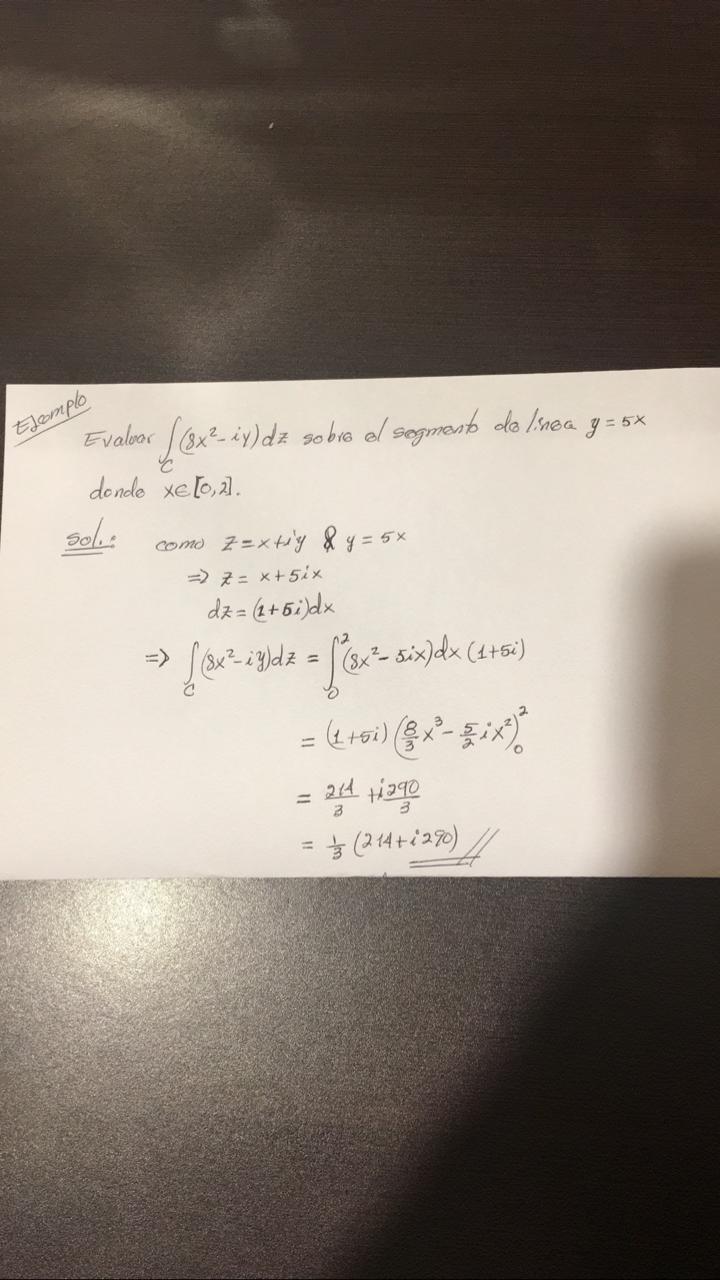 Ejemplo
Evaluar ∫_C (8x² - iy)dz sobre el segmento de línea y = 5x
donde x∈[0,2].
sol.: como z = x+iy & y = 5x
⇒ z = x + 5ix
dz = (1+5i)dx
⇒ ∫_C (8x² - iy)dz = ∫_0^2 (8x² - 5ix)dx (1+5i)
= (1+5i) (8/3 x³ - 5/2 ix²)_0^2
= 214/3 + i290/3
= 1/3 (214 + i290)//